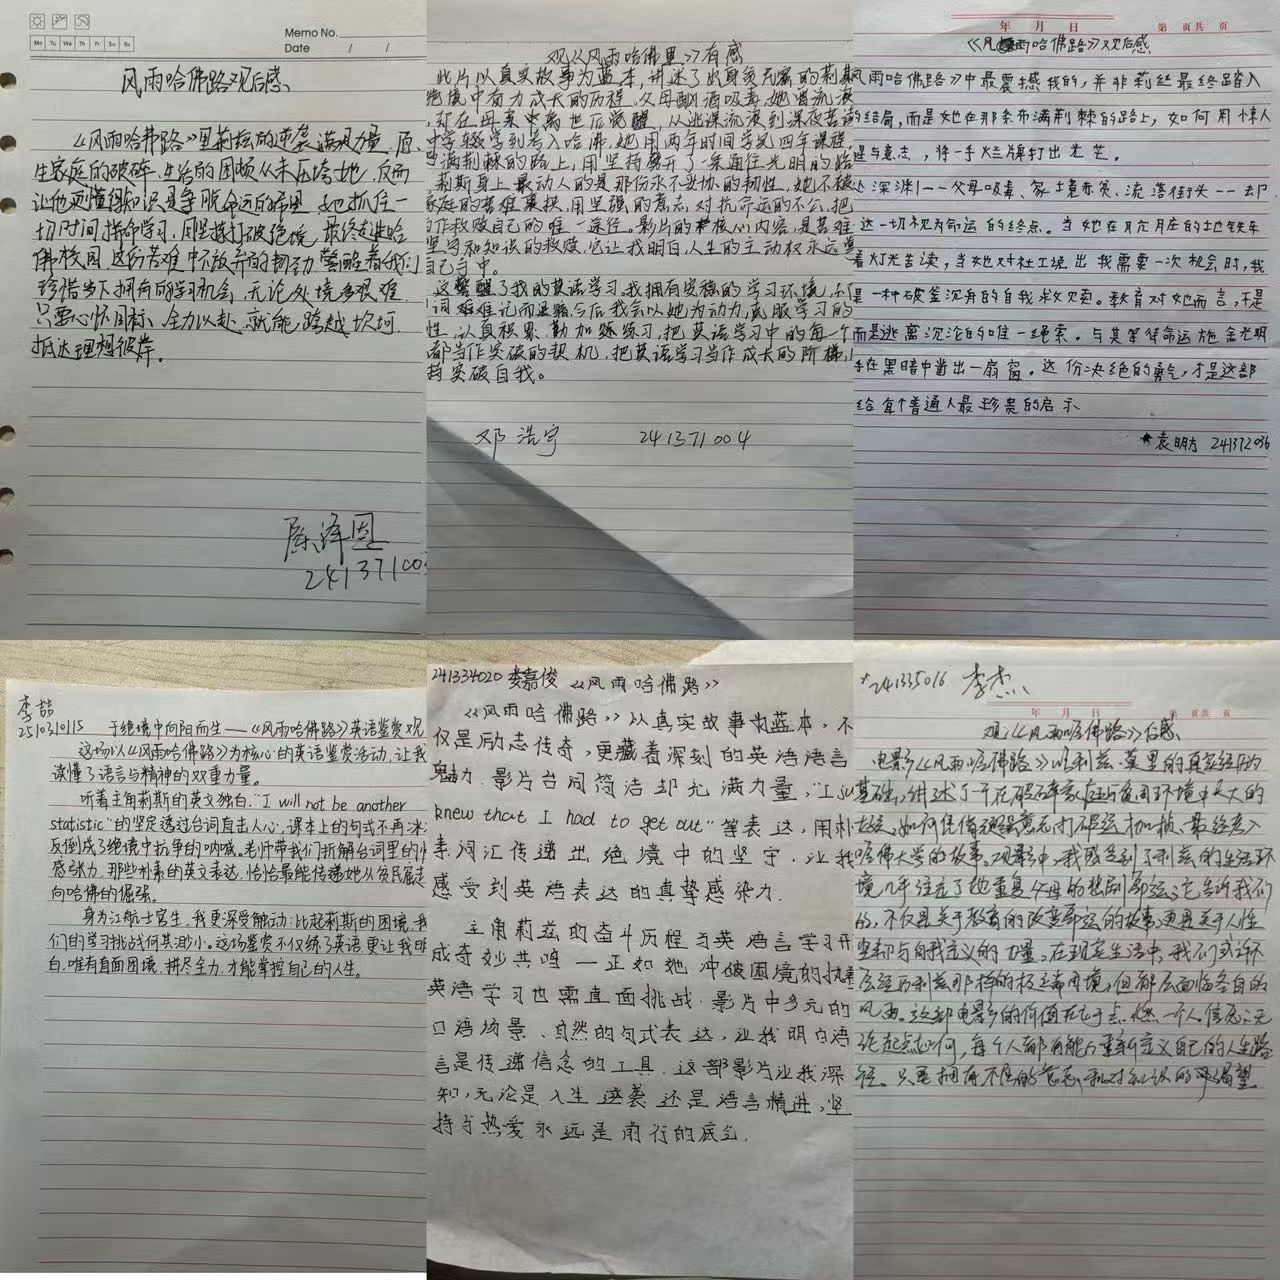 Memo No.
Date / /
Mo Tu We Th Fr Sa Su
风雨哈佛路观后感
《风雨哈佛路》里莉兹的逆袭满是力量，原
生家庭的破碎、生活的困顿从未压垮她，反而
让他更懂得知识是争脱命运的希望。她抓住一
切时间拼命学习，用坚持打破绝境，最终走进哈
佛校园。这份苦难中不放弃的韧劲，警醒着我们
珍惜当下拥有的学习机会，无论处境多艰难，
只要心怀目标、全力以赴，就能跨越坎坷，
抵达理想彼岸。
陈泽恩
24137100
观《风雨哈佛里》有感
此片以真实故事为蓝本，讲述了出身贫
绝境中奋力成长的历程。父母酗酒吸毒，她曾流浪
，却在母亲中离世后觉醒，从逃课流浪到深夜苦读
中学辍学到考入哈佛，她用两年时间学完四年课程，
满荆棘的路上，用坚持劈开了一条通往光明的路
莉斯身上最动人的是那份永不妥协的韧性，她不被
家庭的苦难裹挟，用坚强的意志对抗命运的不公，把
作救赎自己的唯一途径。影片的核心内容，是苦难
坚守和知识的救赎，它让我明白，人生的主动权永远
自己手中。
这警醒了我的英语学习，我拥有安稳的学习环境，
词难难记而退缩，今后我会以她为动力，克服学习的
性，认真积累、勤加练习，把英语学习中的每一个
都当作突破的契机，把英语学习当作成长的阶梯，
突破自我。
邓浩宇 241371004
年 月 日 第 页共 页
《风雨哈佛路》观后感
风雨哈佛路》中最震撼我的，并非莉丝最终踏入
的结局，而是她在那条布满荆棘的路上，如何用惊人
意志，将一手烂牌打出光芒。
深渊——父母吸毒、家境赤贫、流落街头——却
这一切视为命运的终点。当她在
着灯光苦读，当她对社工说出我需要一次机会时，我
是一种破釜沉舟的自我救赎。教育对她而言，不是
而是逃离沉沦的唯一绳索。与其等待命运施舍光明
在黑暗中凿出一扇窗。这份决绝的勇气，才是这部
给每个普通人最珍贵的启示
袁明方 241372036
李喆
2510310115 于绝境中向阳而生——《风雨哈佛路》英语鉴赏观
这场以《风雨哈佛路》为核心的英语鉴赏活动，让我
读懂了语言与精神的双重力量。
听着主角莉斯的英文独白，"I will not be another
statistic"的坚定透过台词直击人心，课本上的句式不再冰冷
反倒成了绝境中抗争的呐喊。老师带我们拆解台词里的
感张力，那些朴素的英文表达，恰恰最能传递她从贫民窟走
向哈佛的倔强。
身为江航士官生，我更深受触动：比起莉斯的困境，我
们的学习挑战何其渺小。这场鉴赏不仅练了英语，更让我明
白，唯有直面困境，拼尽全力，才能掌控自己的人生。
241334020 娄嘉俊 《风雨哈佛路》
《风雨哈佛路》以真实故事为蓝本，不
仅是励志传奇，更藏着深刻的英语语言
魅力。影片台词简洁却充满力量，"I ju
knew that I had to get out"等表达，用朴
素词汇传递出绝境中的坚守，让我
感受到英语表达的真挚感染力。
主角莉兹的奋斗历程与英语言学习开
成奇妙共鸣——正如她冲破困境的执着
英语学习也需直面挑战。影片中多元的
口语场景、自然的句式表达，让我明白语
言是传递信念的工具。这部影片让我深
知，无论是人生逆袭还是语言精进，坚
持与热爱永远是前行的底气。
241335016 李杰
年 月 日 第 页共 页
观：《风雨哈佛路》后感
电影《风雨哈佛路》以利兹·莫里的真实经历为
基础，讲述了一个在破碎家庭与贫困环境中长大的
，如何凭借顽强意志打破命运枷锁、最终考入
哈佛大学的故事。观影中，我感受到了利兹的生活环
境几乎注定了她重复父母的悲剧命运，它告诉我们
的，不仅是关于教育的改变命运的故事，更是关于人性
坚韧与自我主义的力量。在现实生活中，我们或许不
会经历利兹那样的极端困境，但都会面临各自的
风雨。这部电影的价值在于点燃一个人信念：无
论起点如何，每个人都有能力重新定义自己的人生路
径。只要拥有不屈的意志和对知识的渴望